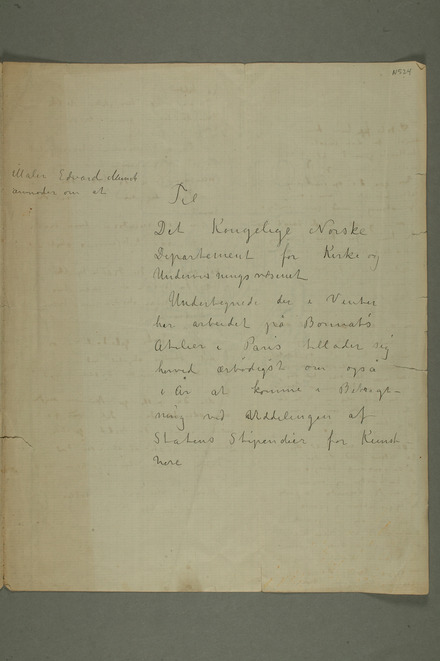 N529
Maler Edvard Munch
anmoder om et
Til
Det Kongelige Norske
Departement for Kirke og
Undervisningsvæsenet
Undertegnede der i Vinter
har arbeidet på Bonnats
Atelier i Paris tillader sig
herved ærbødigst om også
i År at komme i Betragt-
ning ved Uddelingen af
Statens Stipendier for Kunst
nere